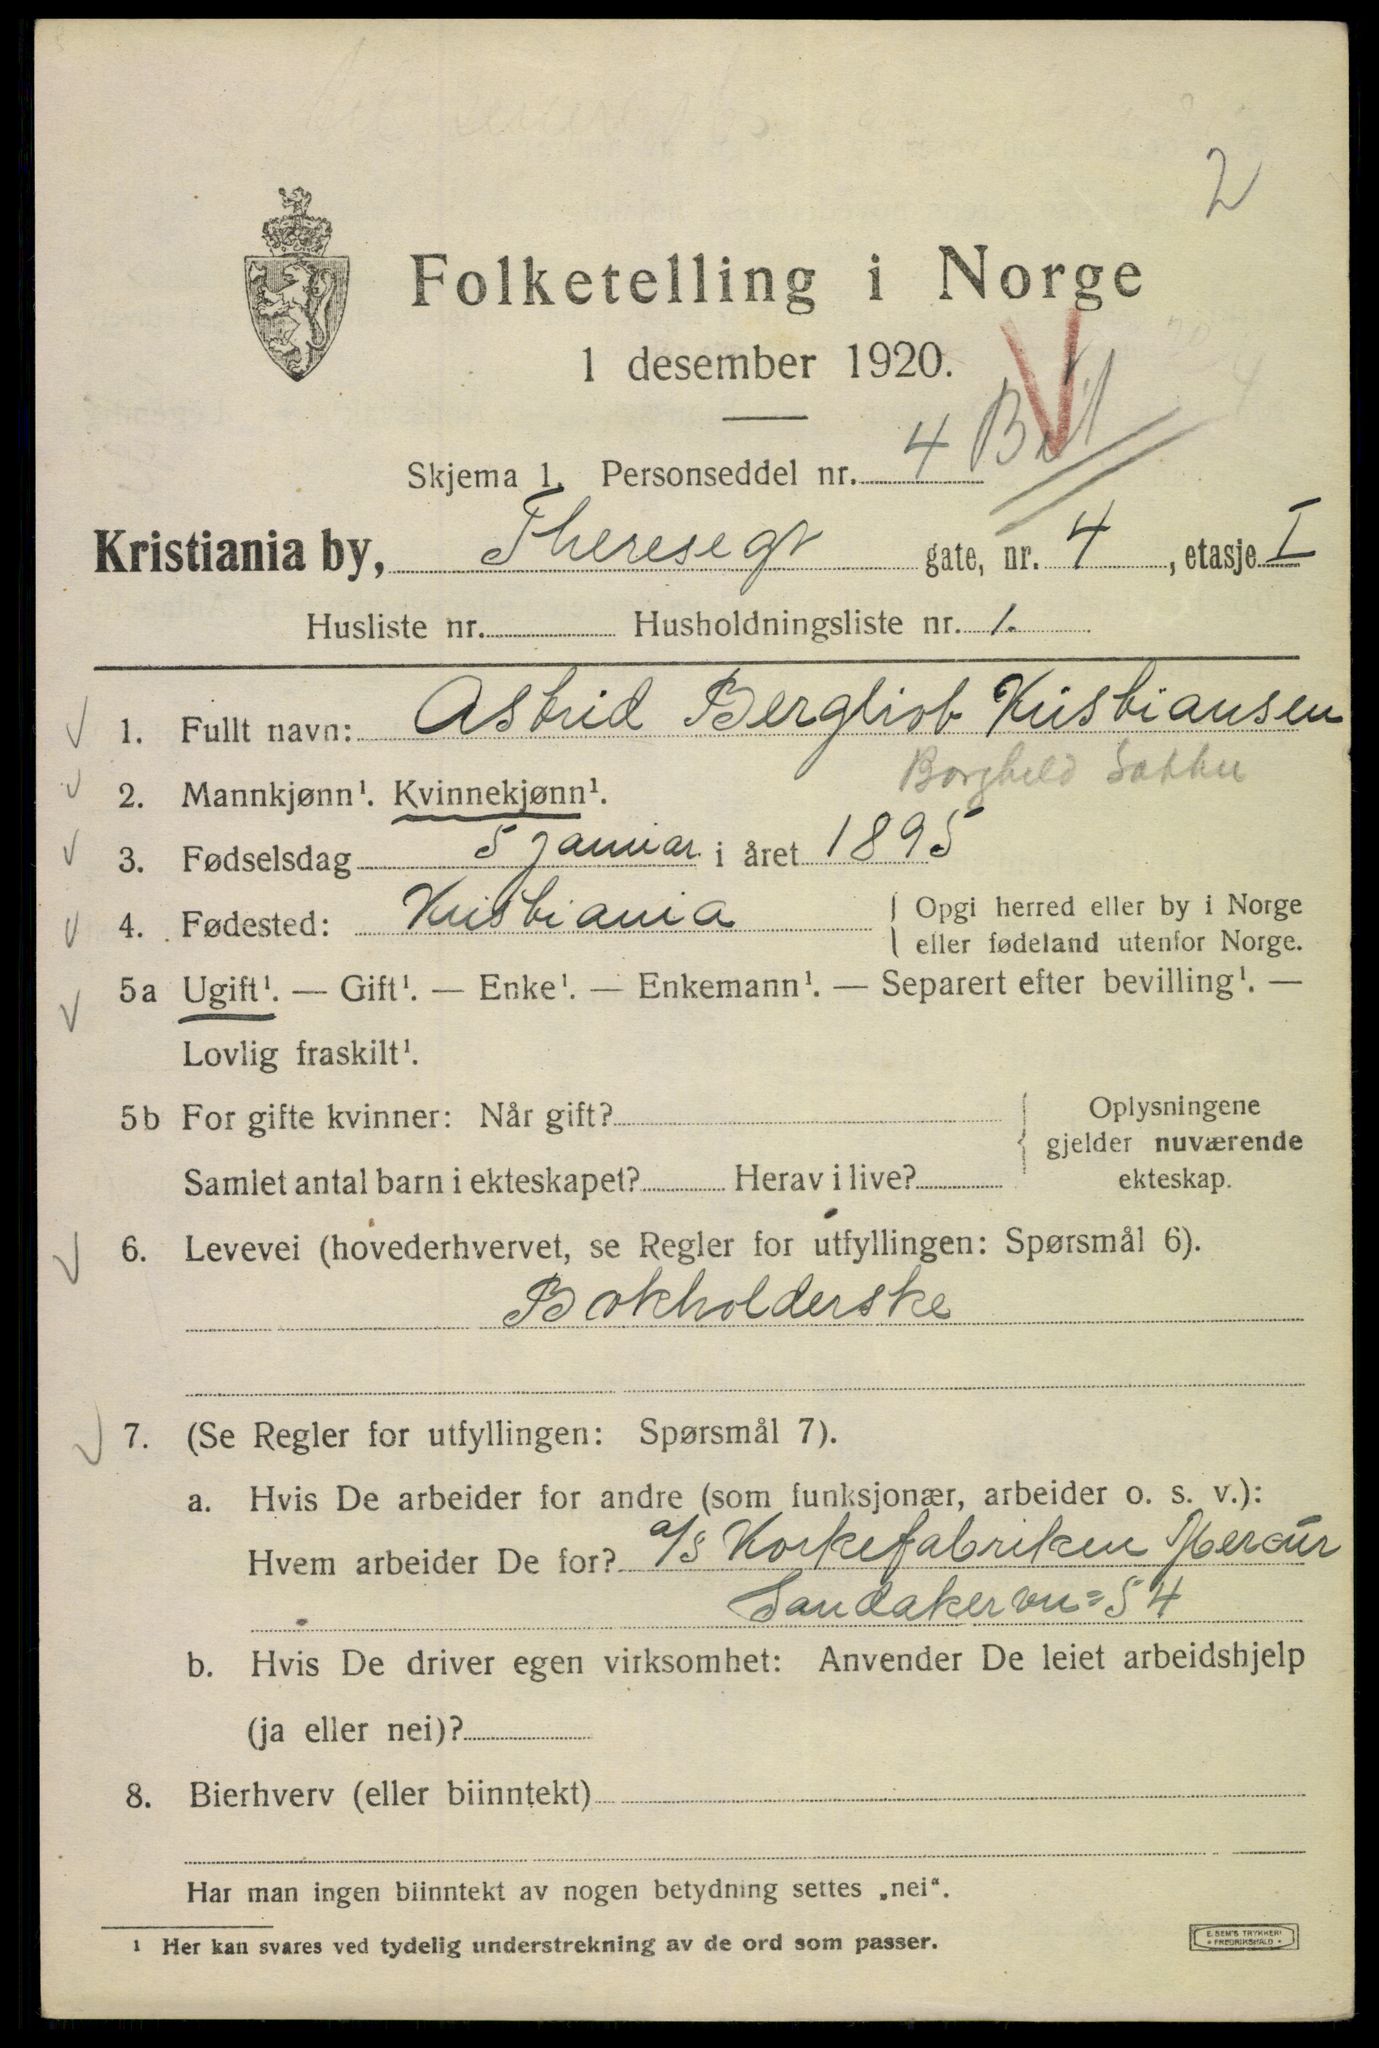 2
Folketelling i Norge
1 desember 1920.
Skjema 1. Personseddel nr. 4
Kristiania by, Theresegt gate, nr. 4, etasje I
Husliste nr. Husholdningsliste nr. 1.
1. Fullt navn: Astrid Bergliot Kristiansen
Borghild
2. Mannkjønn¹. Kvinnekjønn¹.
3. Fødselsdag 5 januar i året 1895
4. Fødested: Kristiania { Opgi herred eller by i Norge
eller fødeland utenfor Norge.
5a Ugift¹. — Gift¹. — Enke¹. — Enkemann¹. — Separert efter bevilling¹. —
Lovlig fraskilt¹.
5b For gifte kvinner: Når gift? { Oplysningene
gjelder nuværende
Samlet antal barn i ekteskapet? Herav i live? ekteskap.
6. Levevei (hovederhvervet, se Regler for utfyllingen: Spørsmål 6).
Bokholderske
7. (Se Regler for utfyllingen: Spørsmål 7).
a. Hvis De arbeider for andre (som funksjonær, arbeider o. s. v.):
Hvem arbeider De for? a/s Korkefabriken Mercur
Sandakervn = 54
b. Hvis De driver egen virksomhet: Anvender De leiet arbeidshjelp
(ja eller nei)?
8. Bierhverv (eller biinntekt)
Har man ingen biinntekt av nogen betydning settes „nei“.
¹ Her kan svares ved tydelig understrekning av de ord som passer.
E. SEM'S TRYKKERI
* FREDRIKSHALD *